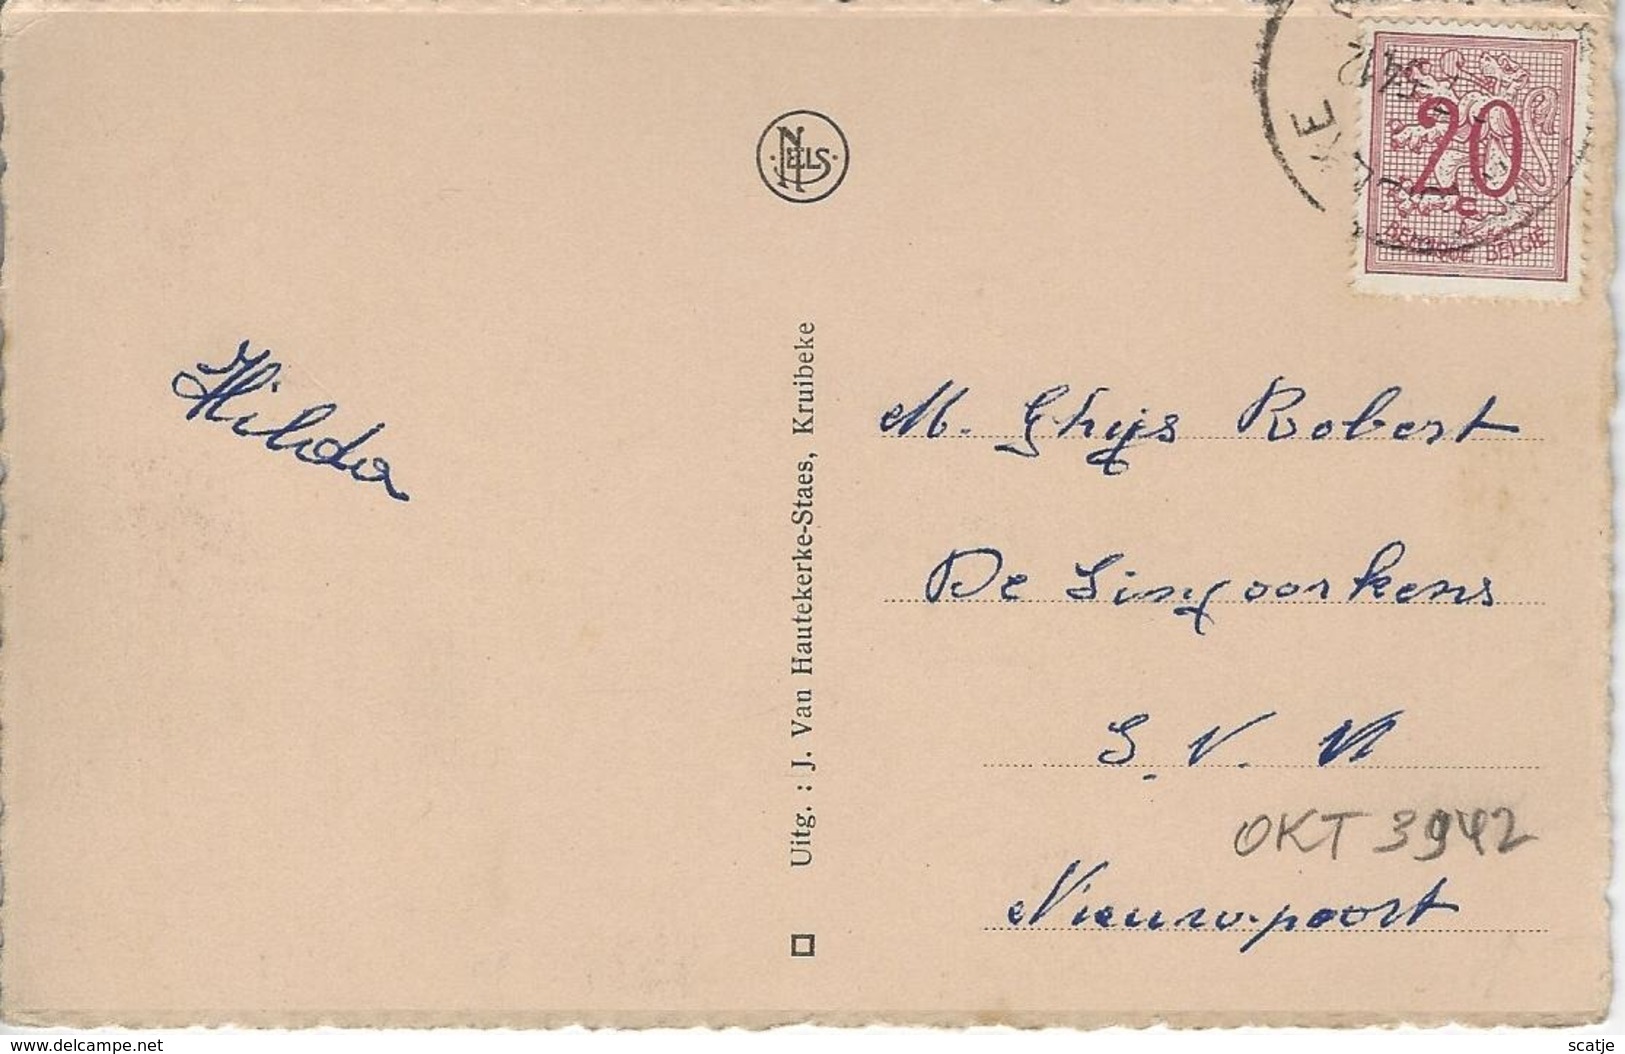 NELS
20 c
BELGIQUE BELGIE
KE
Hilda
Uitg. : J. Van Hautekerke-Staes, Kruibeke
M. Ghijs Robert
De Lingoorkens
S. V. N
OKT 3942
Nieuwpoort
delcampe.net
scatje